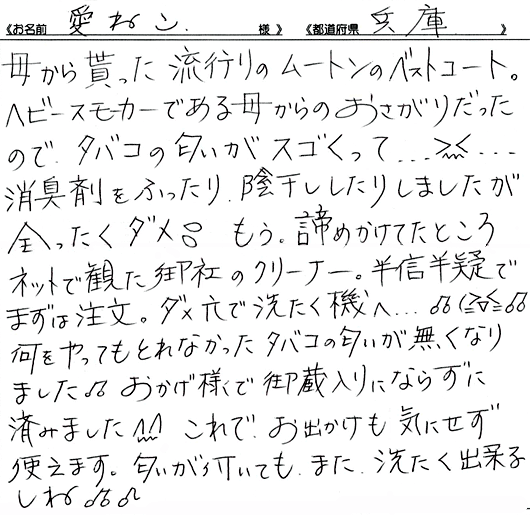 《お名前 愛ねこ. 様》 《都道府県 兵庫 》
母から貰った 流行りのムートンのベストコート。
ヘビースモーカーである母からのおさがりだった
ので、タバコの匂いがスゴくって...>﹏<...
消臭剤をふったり、陰干ししたりしましたが
全ったくダメ もう。諦めかけてたところ
ネットで観た御社のクリーナー。半信半疑で
まずは注文。ダメ元で洗たく機へ...♪♪(≧▽≦)♪♪
何をやってもとれなかったタバコの匂いが無くなり
ました♪♪ おかげ様で御蔵入りにならずに
済みました^^ これで、お出かけも気にせず
使えます。匂いが付いても、また、洗たく出来る
しね♪♪♪